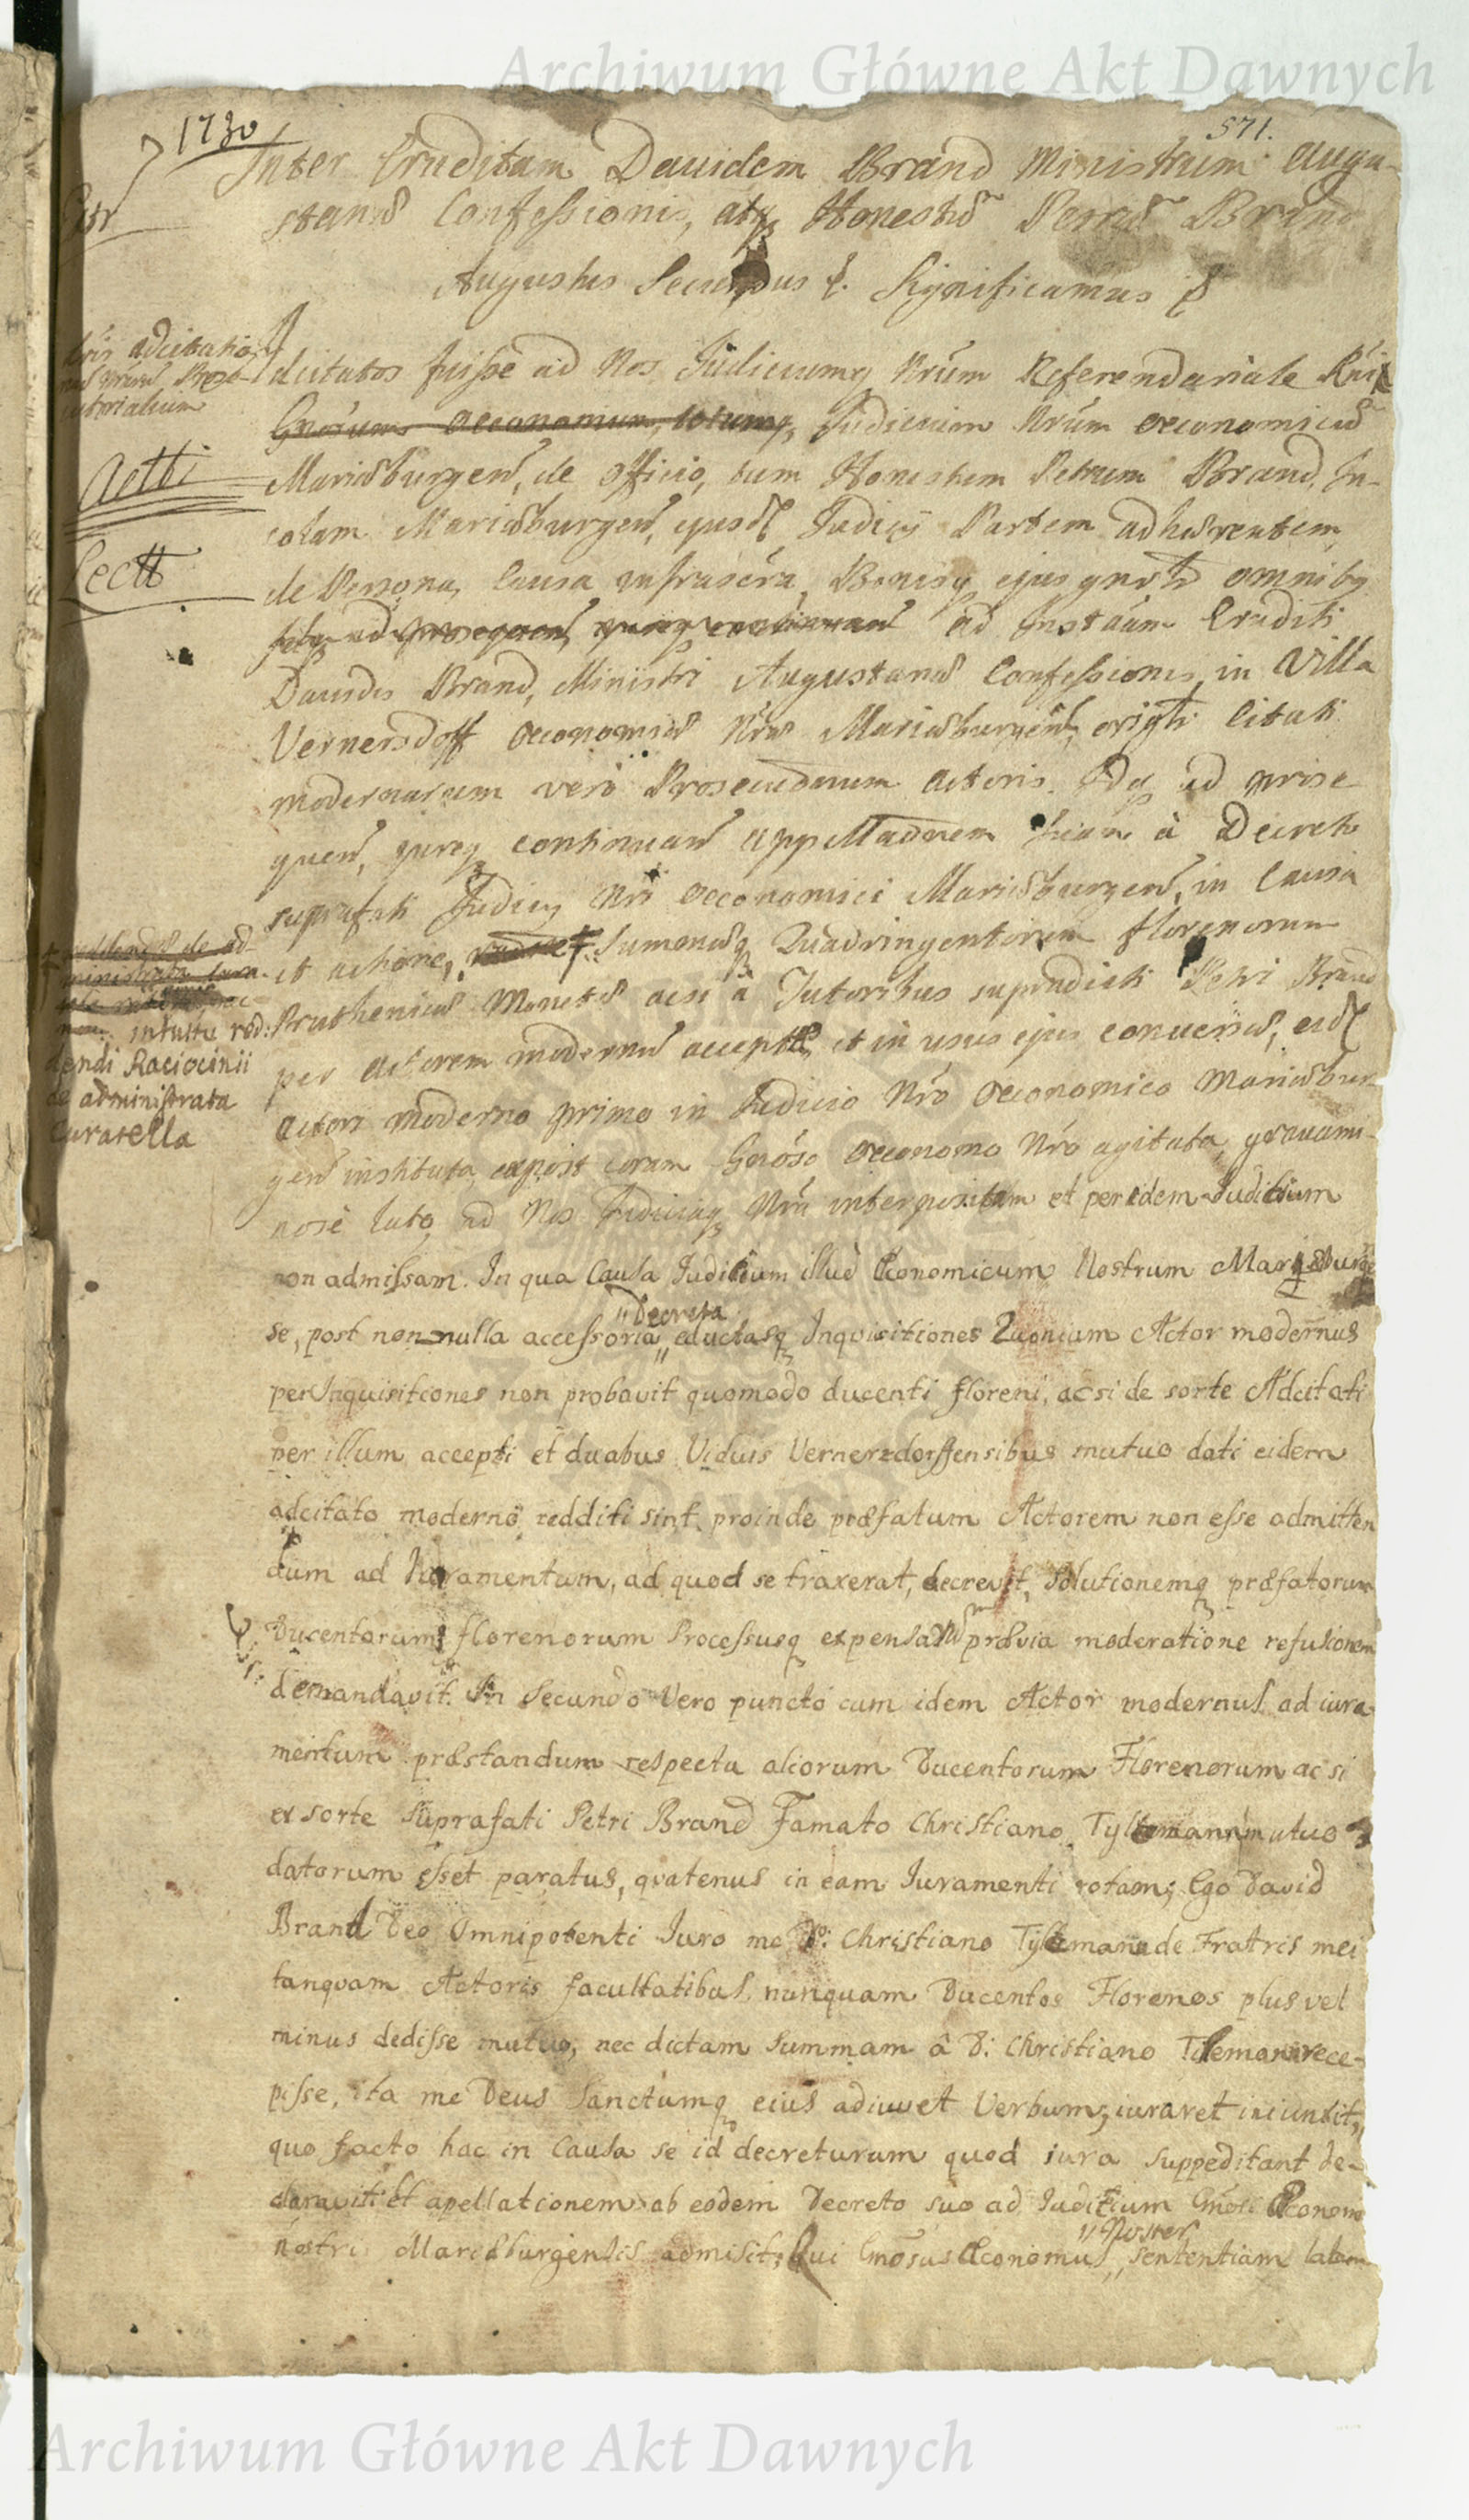 Archiwum Główne Akt Dawnych
1730
571.
Inter Eruditum Davidem Brand Ministrum Augu-
stanæ Confessionis, atq Honestũ Petrũ Brand
Augustus Secundus &. Significamus &
Adcitatos fuisse ad Nos Judiciumq Nrũm Referendariale Rñi
Gnosum Oeconomum, totumq Judicium Nrũm Oeconomicũ
Mariæburgen, de officio, tum Honestum Petrum Brand, In-
colam Mariæburgen, ejusdẽ Judicij Partem adhærentem
de Persona, Causa infrascra, Bonisq ejus gnrlr omnibq
ad Instaam Eruditi
Davidis Brand, Ministri Augustanæ Confessionis, in Villa
Vernersdoff Oeconomiæ Nræ Mariæburgen, origlr Citati
modernarum vero Prosecutionum Actoris. Idq ad prose
quen, jureq continuan appellaonem suam à Decreto
suprafati Judicij Nri Oeconomici Mariæburgen, in Causa
et actione, Summæq Quadringentorum florenorum
Pruthenicæ Monetæ acsi à Tutoribus supradicti Petri Brand
per Actorem modernũ acceptæ, et in usus ejus conversæ, eidẽ
Actori moderno primo in Judicio Nro Oeconomico Mariæbur-
gen instituta, expost coram Gnoso Oeconomo Nro agitata, gravami-
nose lato, ad Nos Judiciaq Nra interpositam et per idem Judicium
non admissam. In qua Causa Judicium illud Œconomicum Nostrum Mariæburgen
"Decreta
se, post nonnulla accessoria" eductasq Inquisitiones Quoniam Actor modernus
per Inquisitiones non probavit quomodo ducenti floreni, ac si de sorte Adcitati
per illum accepti et duabus Viduis Vernerzdorffensibus mutuo dati eidem
adcitato moderno redditi sint, proinde præfatum Actorem non esse admitten
dum ad Juramentum, ad quod se traxerat, decrevit, Solutionemq præfatorum
Ducentorum florenorum Processusq expensarũ prævia moderatione refusionem
demandavit. In Secundo Vero puncto cum idem Actor modernus ad iura-
mentum præstandum respectu aliorum Ducentorum Florenorum ac si
ex sorte Suprafati Petri Brand Famato Christiano Tylemann mutuo
datorum esset paratus, quatenus in eam Iuramenti rotam; Ego David
Brand Deo Omnipotenti Iuro me Dº: Christiano Tylemann de Fratris mei
tanquam Actoris facultatibus, nunquam Ducentos Florenos plus vel
minus dedisse mutuo, nec dictam Summam â D: Christiano Tilemann rece-
pisse, ita me Deus Sanctumq eius adiuvet Verbum, iuraret iniunxit,
quo facto hac in Causa se id decreturum quod iura suppeditant de-
claravit et apellationem ab eodem Decreto suo ad Judicium Gnosi Œconomi
"Noster
nostri Mariæburgensis admisit; Qui Gnosus Œconomus" Sententiam latam
adcitatio
Actti
Lectt
intuitu red:
dendi Raciocinii
de administrata
Curatella
Archiwum Główne Akt Dawnych